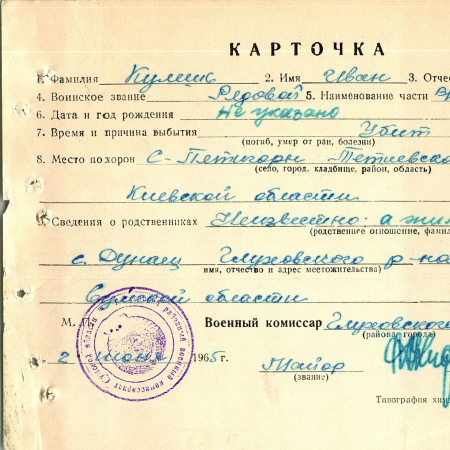 КАРТОЧКА
1. Фамилия Кулик 2. Имя Иван 3. Отче
4. Воинское звание Рядовой 5. Наименование части
6. Дата и год рождения Не указано
7. Время и причина выбытия Убит
(погиб, умер от ран, болезни)
8. Место похорон С-Пятигоры Тетиевско
(село, город, кладбище, район, область)
Киевской области
9. Сведения о родственниках Неизвестно: а жил
(родственное отношение, фамил
с. Дунаец Глуховского р-на
имя, отчество и адрес местожительства)
Сумской области
М. П. Военный комиссар Глуховского
(района, города)
2 июня 1965 г. Майор
(звание)
Типография хим